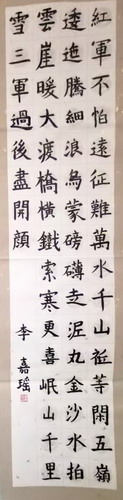 紅軍不怕遠征難萬水千山祗等閑五嶺
逶迤騰細浪烏蒙磅礴走泥丸金沙水拍
雲崖暖大渡橋橫鐵索寒更喜岷山千里
雪三軍過後盡開顏
李嘉瑶